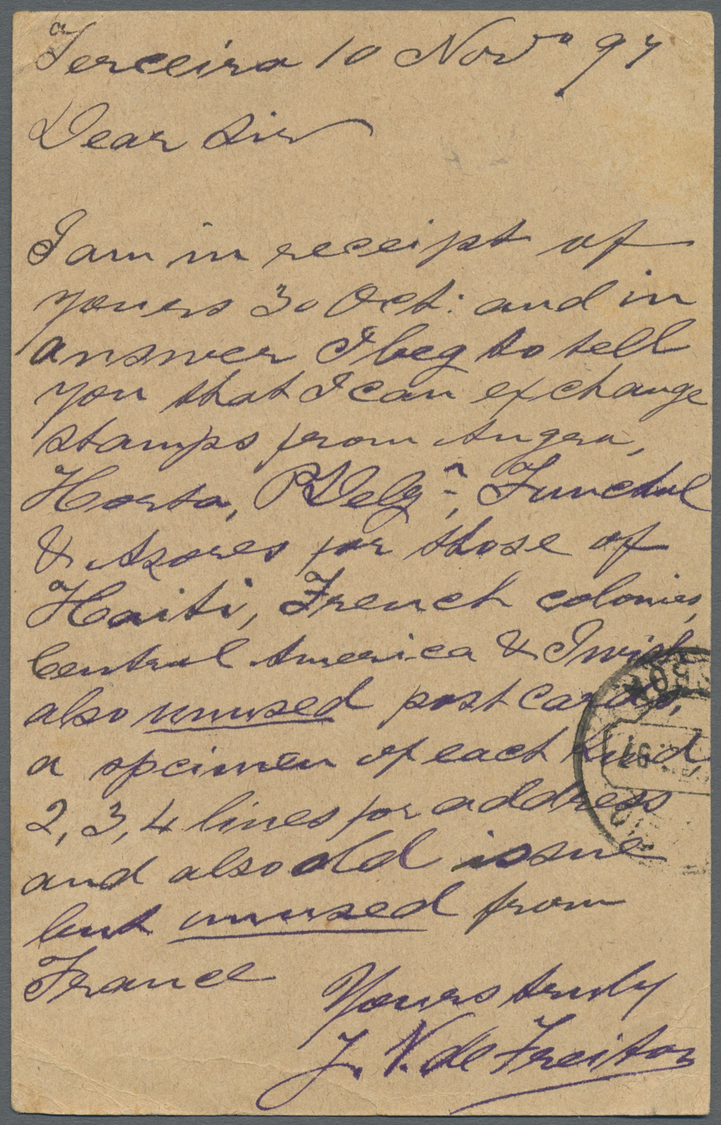 Terceira 10 Novº 97
Dear Sir
I am in receipt of
yours 30 Oct: and in
answer I beg to tell
you that I can exchange
stamps from Angra,
Horta, PDelgª, Funchal
& Azores for those of
Haiti, French colonies,
Central America & I wish
also unused post cards,
a specimen of each kind
2, 3, 4 lines for address
and also old issue
but unused from
France
Yours truly
J. V. de Freitas
97